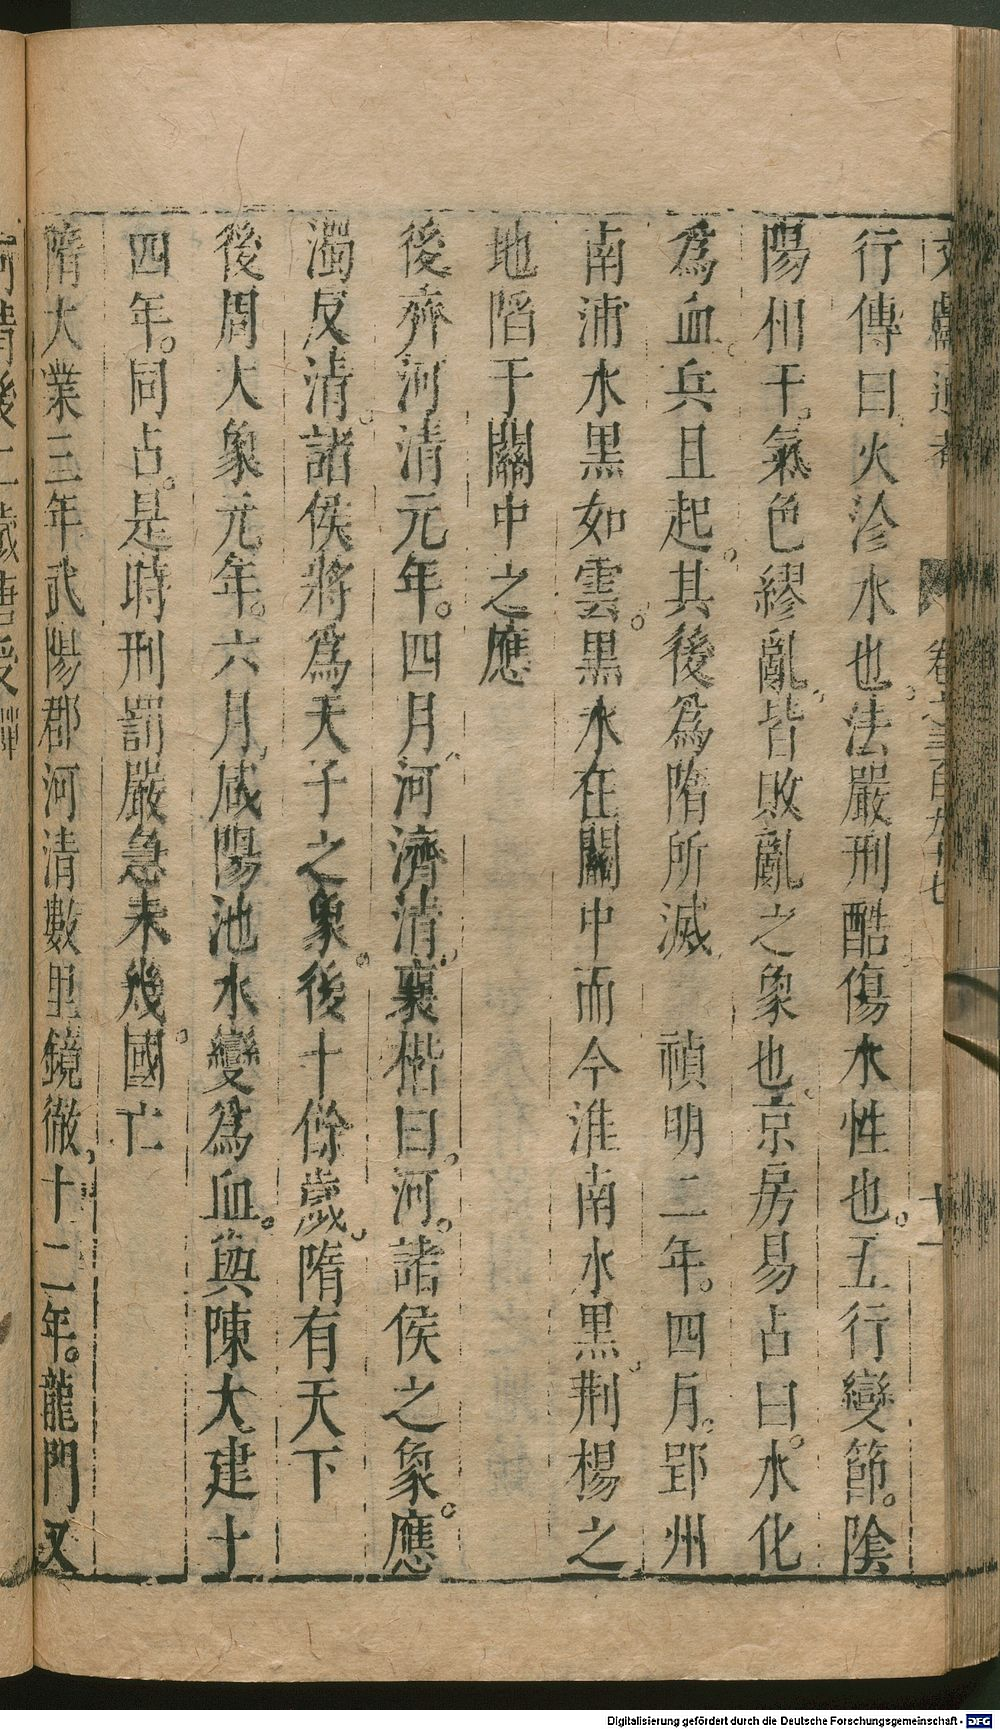 文獻通考 卷之二百九十七 十一
行傳曰火沴水也。法嚴刑酷傷水性也。五行變節。陰
陽相干。氣色繆亂。皆敗亂之象也。京房易占曰。水化
爲血。兵且起。其後爲隋所滅 禎明二年。四月。郢州
南浦水黑如雲。黑水在關中而今淮南水黑。荆楊之
地陷于關中之應
後齊河清元年。四月。河濟清。襄楷曰。河。諸侯之象。應
濁反清。諸侯將爲天子之象。後十餘歲。隋有天下
後周大象元年。六月。咸陽池水變爲血。與陳大建十
四年。同占。是時刑罰嚴急未幾。國亡
隋大業三年武陽郡河清數里鏡徹。十二年。龍門又
河清後二歲唐受禪
Digitalisierung gefördert durch die Deutsche Forschungsgemeinschaft - DFG